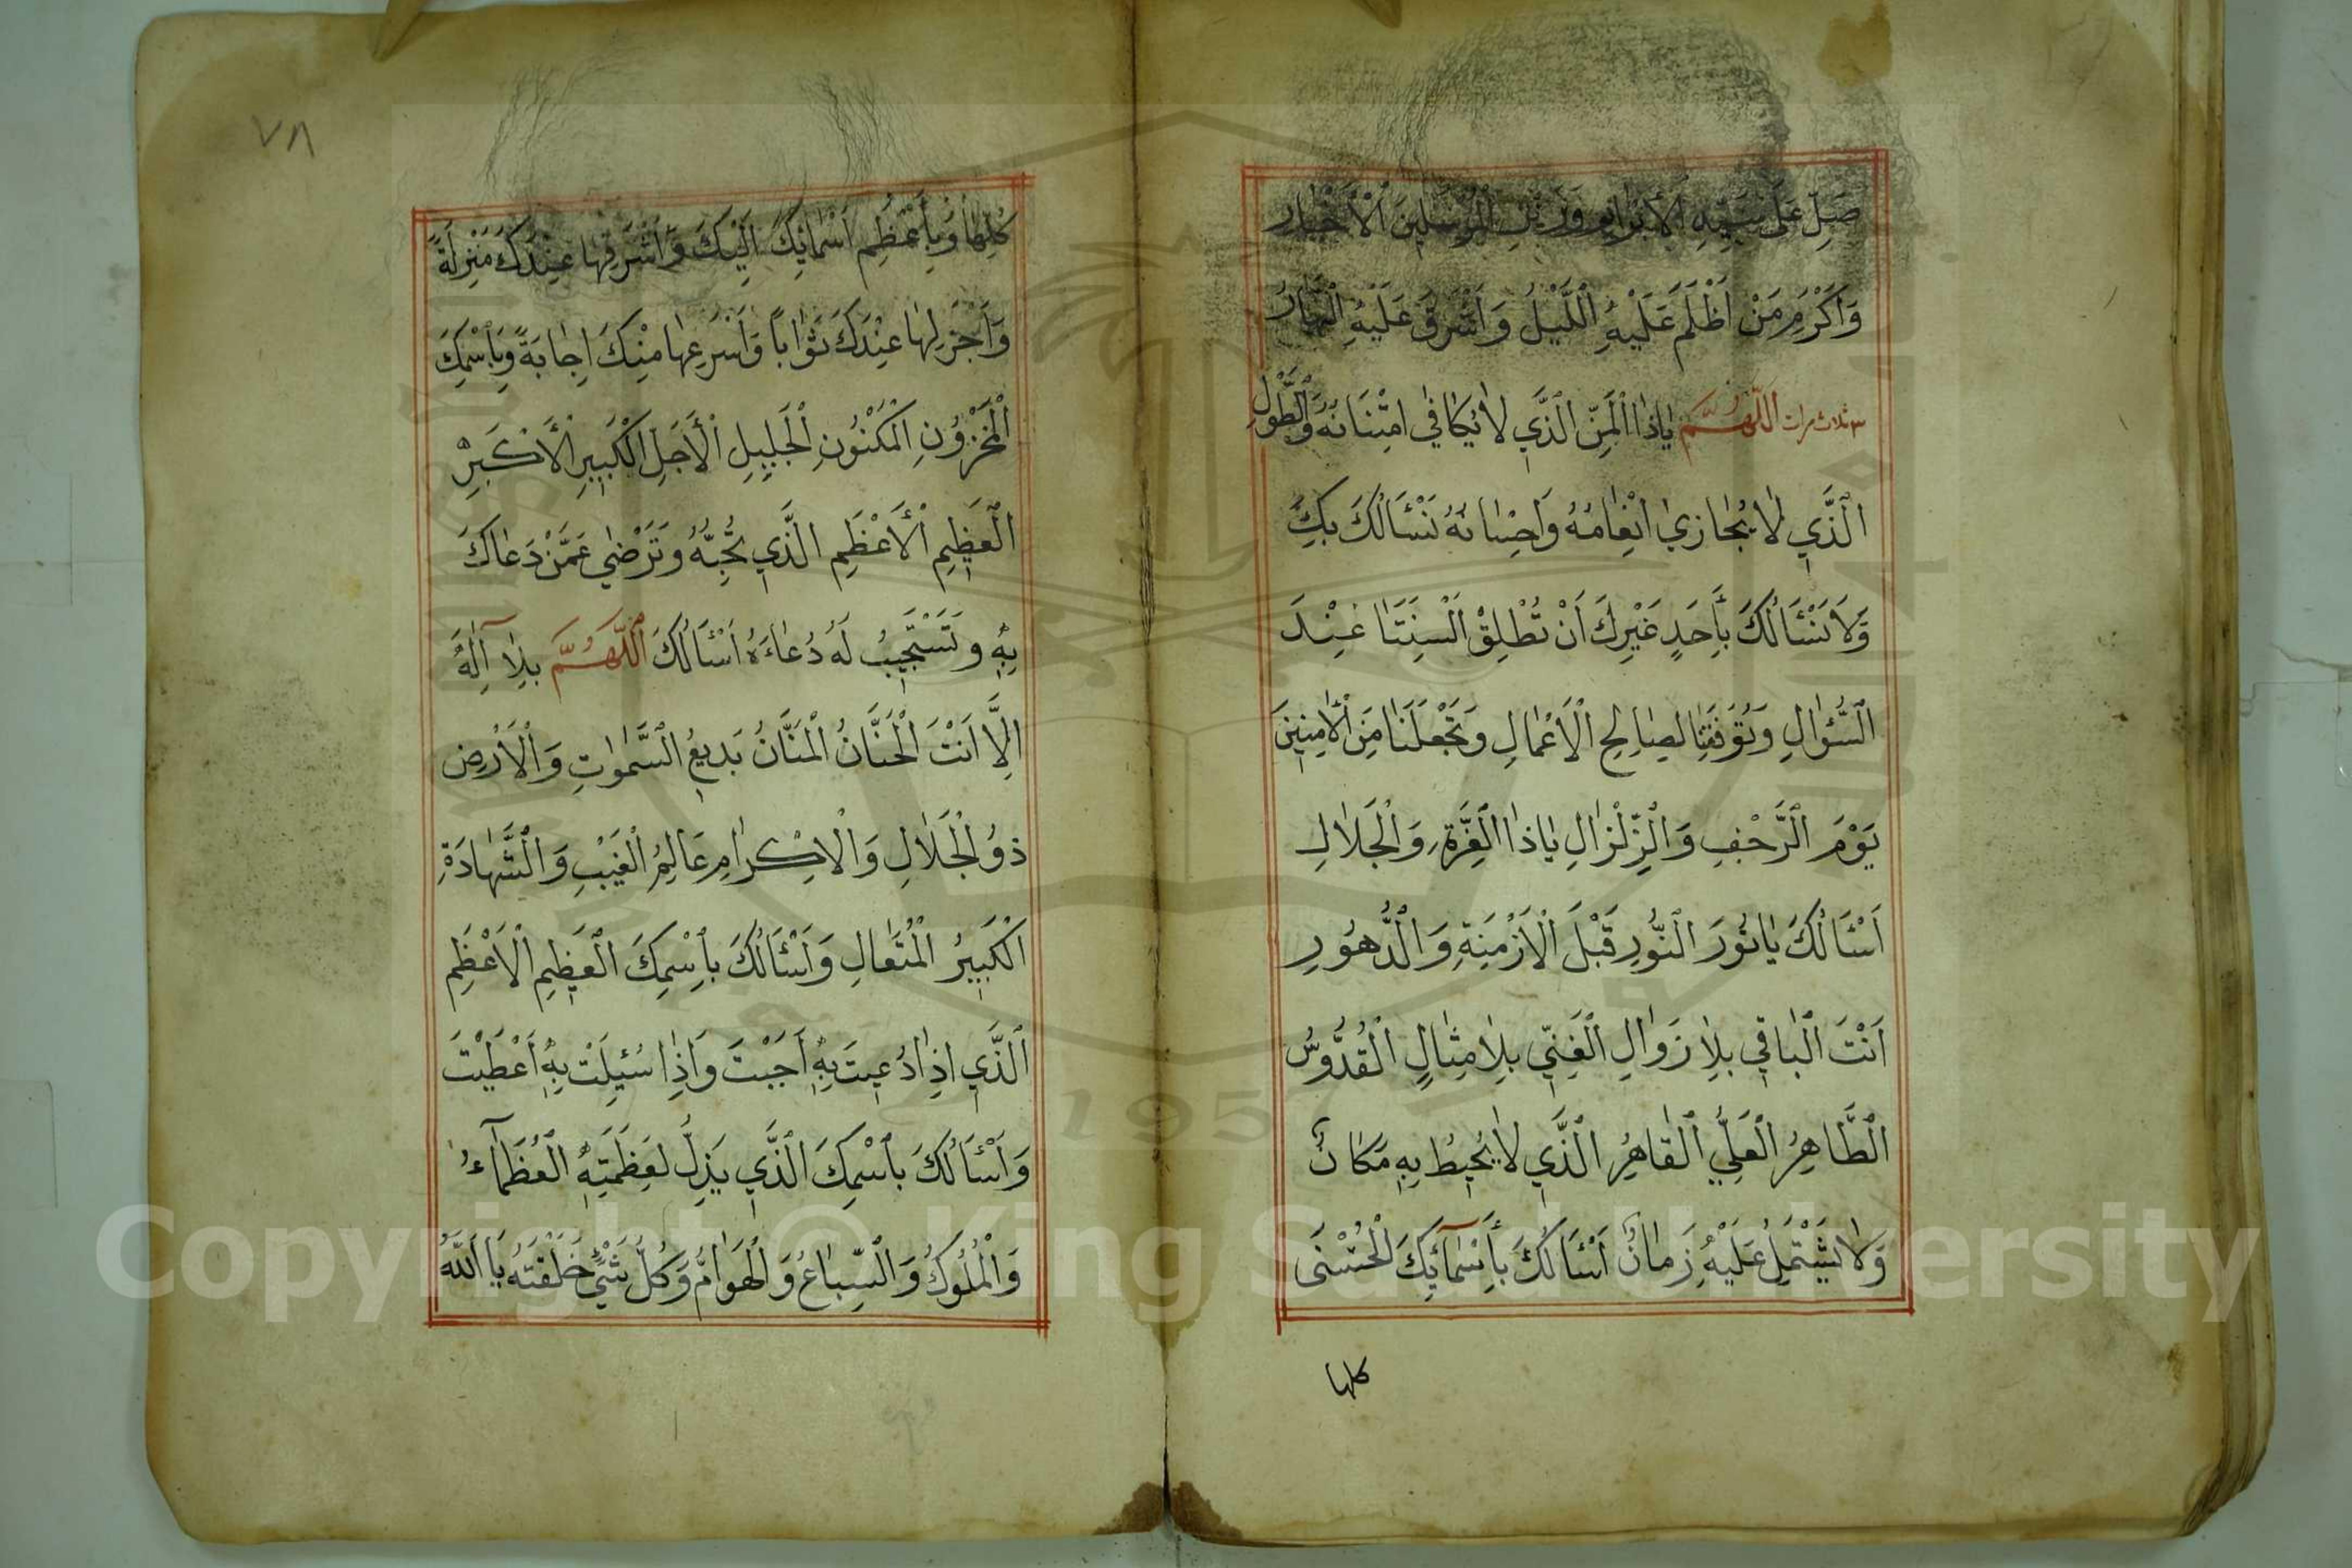 صَلِّ عَلَى سَيِّدِ الْأَبْرَارِ وَزَيْنِ الْمُرْسَلِينَ الْأَخْيَارِ
وَاَكْرَمِ مَنْ اَظْلَمَ عَلَيْهِ الَّليْلُ وَاَشْرَقَ عَلَيْهِ النَّهَارُ
٣ ثلاث مرات اَللّٰهُمَّ يَاذَا الْمَنِّ الَّذِي لَا يُكَافٰي امْتِنَانُهُ وَالطَّوْلِ
الَّذِي لَا يُجَازٰي اِنْعَامُهُ وَاِحْسَانُهُ نَسْئَالُكَ بِكَ
وَلَا نَسْئَالُكَ بِأَحَدٍ غَيْرِكَ اَنْ تُطْلِقَ اَلْسِنَتَنَا عِنْدَ
السُّؤَالِ وَتُوَفِّقَنَا لِصَالِحِ الْاَعْمَالِ وَتَجْعَلَنَا مِنَ الْاٰمِنِينَ
يَوْمَ الرَّجْفِ وَالزِّلْزَالِ يَاذَا الْعِزَّةِ وَالْجَلَالِ
اَسْئَالُكَ يَا نُورَ النُّورِ قَبْلَ الْاَزْمِنَةِ وَالدُّهُورِ
اَنْتَ الْبَاقِي بِلَا زَوَالٍ الْغَنِيُّ بِلَا مِثَالٍ الْقُدُّوسُ
الطَّاهِرُ الْعَلِيُّ الْقَاهِرُ الَّذِي لَا يُحِيطُ بِهِ مَكَانٌ
وَلَا يَشْتَمِلُ عَلَيْهِ زَمَانٌ اَسْئَالُكَ بِأَسْمَآئِكَ الْحُسْنَى
كلها
٧٨
كُلِّهَا وَبِأَعْظَمِ اَسْمَائِكَ اِلَيْكَ وَاَشْرَفِهَا عِنْدَكَ مَنْزِلَةً
وَاَجْزَلِهَا عِنْدَكَ ثَوَاباً وَاَسْرَعِهَا مِنْكَ اِجَابَةً وَبِاسْمِكَ
الْمَخْزُونِ الْمَكْنُونِ الْجَلِيلِ الْأَجَلِّ الْكَبِيرِ الْأَكْبَرِ
الْعَظِيمِ الْأَعْظَمِ الَّذِي تُحِبُّهُ وَتَرْضٰي عَمَّنْ دَعَاكَ
بِهِ وَتَسْتَجِيبُ لَهُ دُعَاءَهُ اَسْئَالُكَ اللّٰهُمَّ بِلَا آلِهَ
اِلَّا اَنْتَ الْحَنَّانُ الْمَنَّانُ بَدِيعُ السَّمٰوَاتِ وَالْاَرْضِ
ذُو الْجَلَالِ وَالْاِكْرَامِ عَالِمُ الْغَيْبِ وَالشَّهَادَةِ
الْكَبِيرُ الْمُتَعَالِ وَاَسْئَالُكَ بِاسْمِكَ الْعَظِيمِ الْاَعْظَمِ
الَّذِي اِذَا دُعِيتَ بِهِ اَجَبْتَ وَاِذَا سُئِلْتَ بِهِ اَعْطَيْتَ
وَاَسْئَالُكَ بِاسْمِكَ الَّذِي يَذِلُّ لِعَظَمَتِهِ الْعُظَمَآءُ
وَالْمُلُوكُ وَالسِّبَاعُ وَالْهَوَامُّ وَكُلُّ شَيْءٍ خَلَقْتَهُ يَا اَللّٰهُ
Copyright © King Saud University
1957